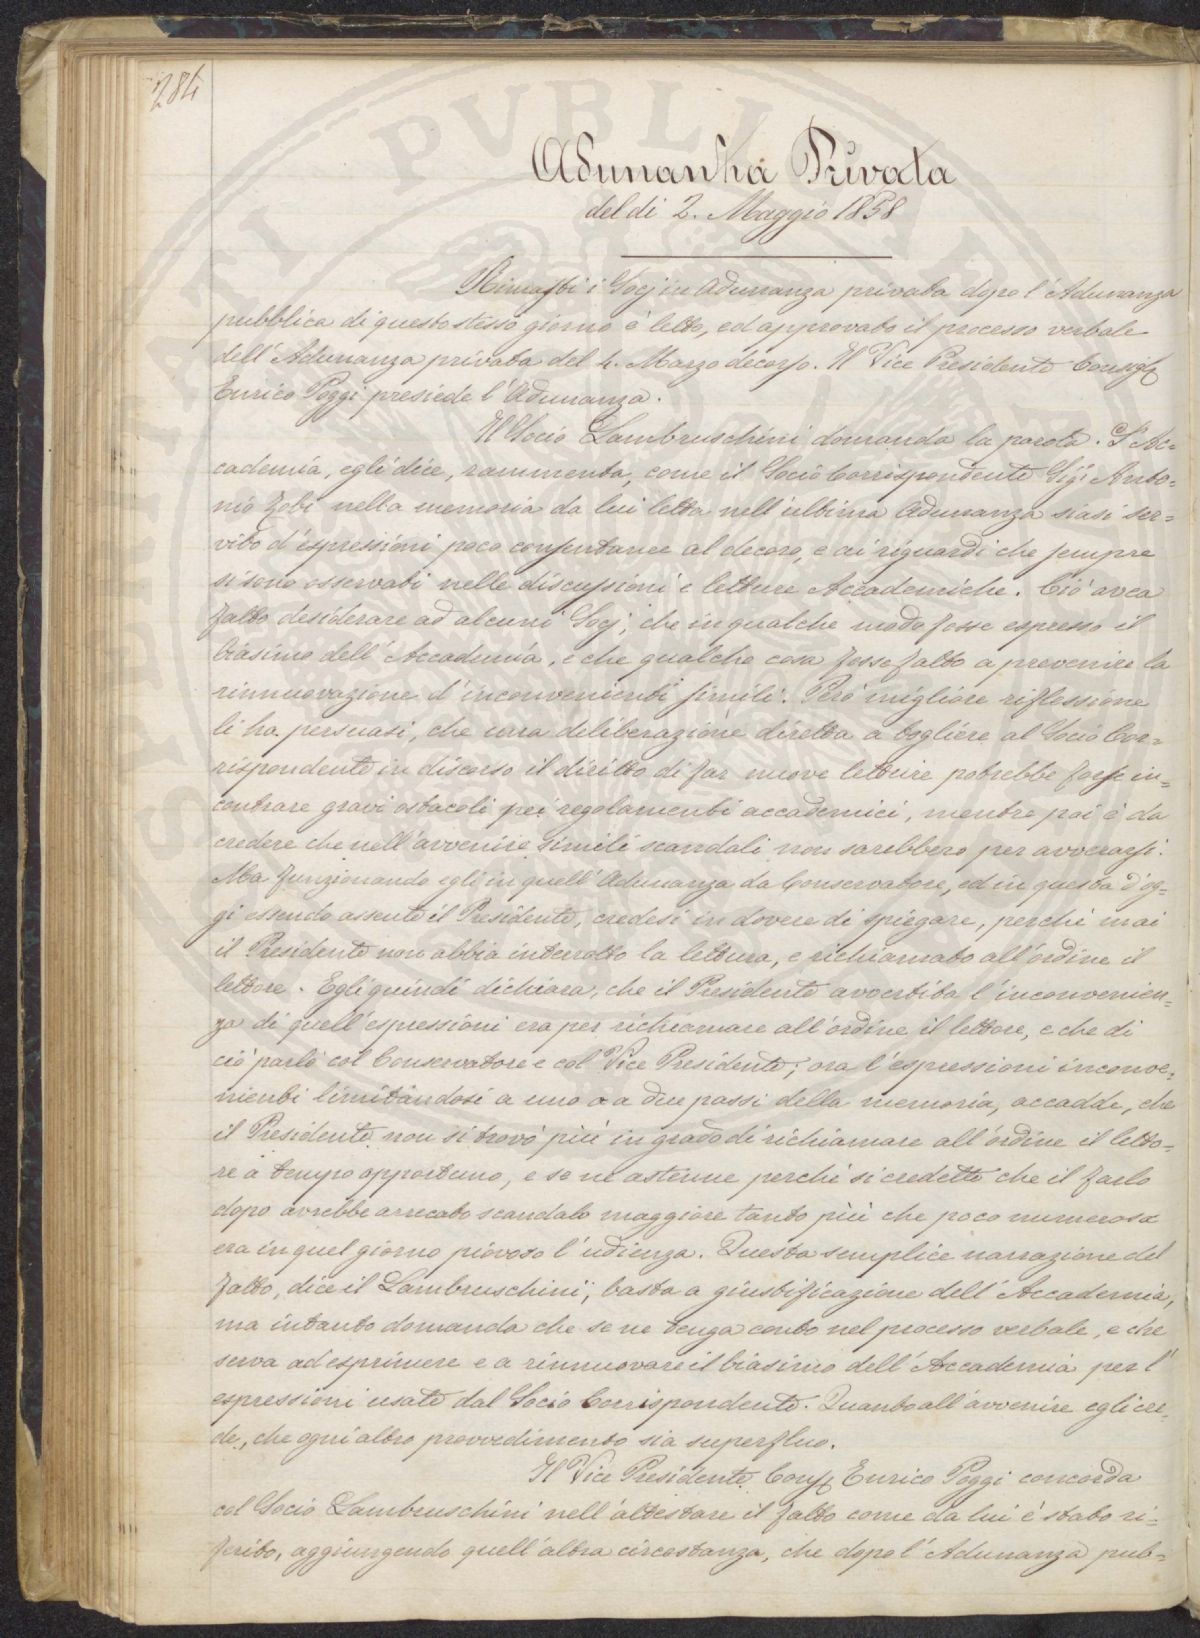 284
Adunanza Privata
del dì 2. Maggio 1858
Rimasti i Socj in Adunanza privata dopo l'Adunanza
pubblica di questo stesso giorno è letto, ed approvato il processo verbale
dell'Adunanza privata del 4. Marzo decorso. Il Vice Presidente Consig.
Enrico Poggi presiede l'Adunanza.
Il Socio Lambruschini domanda la parola. L'Ac=
cademia, egli dice, rammenta, come il Socio Corrispondente Sig. Anto=
nio Zobi nella memoria da lui letta nell'ultima Adunanza siasi ser=
vito d'espressioni poco consentanee al decoro, e ai riguardi che sempre
si sono osservati nelle discussioni e letture Accademiche. Ciò avea
fatto desiderare ad alcuni Socj, che in qualche modo fosse espresso il
biasimo dell'Accademia, e che qualche cosa fosse fatto a prevenire la
rinnuovazione d'inconvenienti simili. Però migliore riflessione
li ha persuasi, che una deliberazione diretta a togliere al Socio Cor=
rispondente in discorso il diritto di far nuove letture potrebbe forse in=
contrare gravi ostacoli pei regolamenti accademici, mentre poi è da
credere che nell'avvenire simili scandali non sarebbero per avverarsi.
Ma funzionando egli in quell'Adunanza da Conservatore, ed in questa d'og=
gi essendo assente il Presidente, credesi in dovere di spiegare, perchè mai
il Presidente non abbia interrotto la lettura, e richiamato all'ordine il
lettore. Egli quindi dichiara, che il Presidente avvertita l'inconvenien=
za di quell'espressioni era per richiamare all'ordine il lettore, e che di
ciò parlò col Conservatore e col Vice Presidente; ora l'espressioni inconve=
nienti limitandosi a uno o a due passi della memoria, accadde, che
il Presidente non si trovò più in grado di richiamare all'ordine il letto=
re a tempo opportuno, e se ne astenne perchè si credette che il farlo
dopo avrebbe arrecato scandalo maggiore tanto più che poco numerosa
era in quel giorno piovoso l'udienza. Questa semplice narrazione del
fatto, dice il Lambruschini, basta a giustificazione dell'Accademia,
ma intanto domanda che se ne tenga conto nel processo verbale, e che
serva ad esprimere e a rinnuovare il biasimo dell'Accademia per l'
espressioni usate dal Socio Corrispondente. Quanto all'avvenire egli cre=
de, che ogni altro provvedimento sia superfluo.
Il Vice Presidente Cons. Enrico Poggi concorda
col Socio Lambruschini nell'attestare il fatto come da lui è stato ri=
ferito, aggiungendo quell'altra circostanza, che dopo l'Adunanza pub=